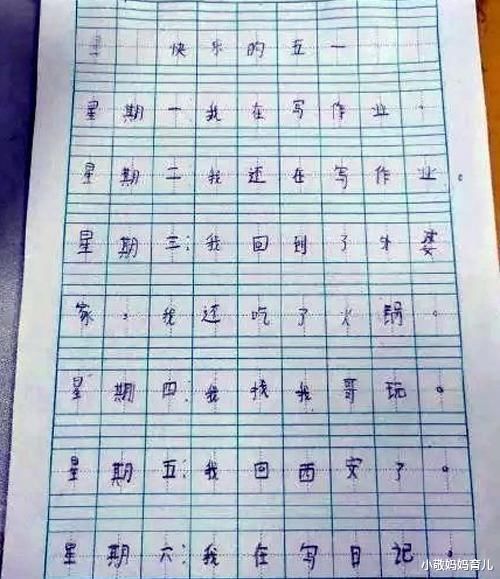 快乐的五一
星期一我在写作业。
星期二:我还在写作业。
星期三:我回到了外婆
家,我还吃了火锅。
星期四:我找我哥玩。
星期五:我回西安了。
星期六:我在写日记。
小敬妈妈育儿